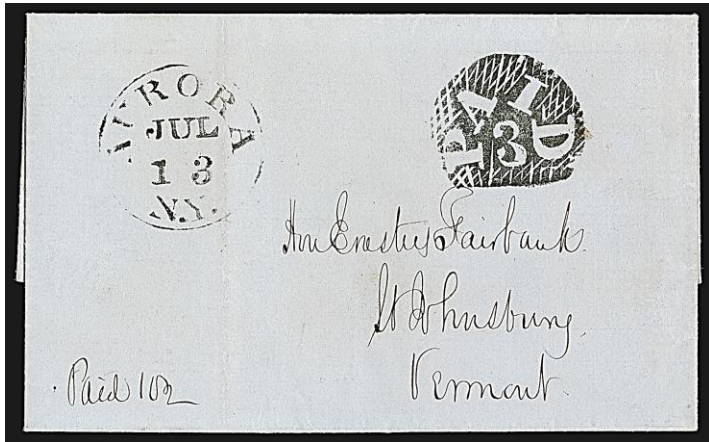 AURORA
JUL
13
N.Y.
PAID
3
Hon Erastus Fairbanks
St Johnsbury
Vermont.
Paid 102